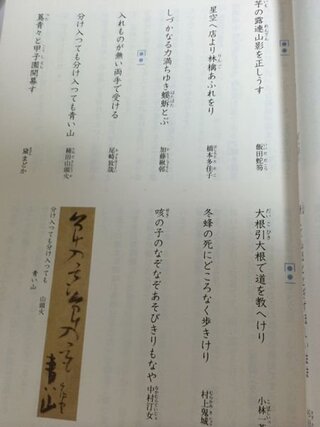 芋の露連山影を正しうす
飯田蛇笏
星空へ店より林檎あふれをり
橋本多佳子
しづかなる力満ちゆき螇蚸とぶ
加藤楸邨
入れものが無い両手で受ける
尾崎放哉
分け入つても分け入つても青い山
種田山頭火
蔦青々と甲子園開幕す
黛まどか
大根引大根で道を教へけり
小林一茶
冬蜂の死にどころなく歩きけり
村上鬼城
咳の子のなぞなぞあそびきりもなや
中村汀女
分け入つても分け入つても
青い山
山頭火